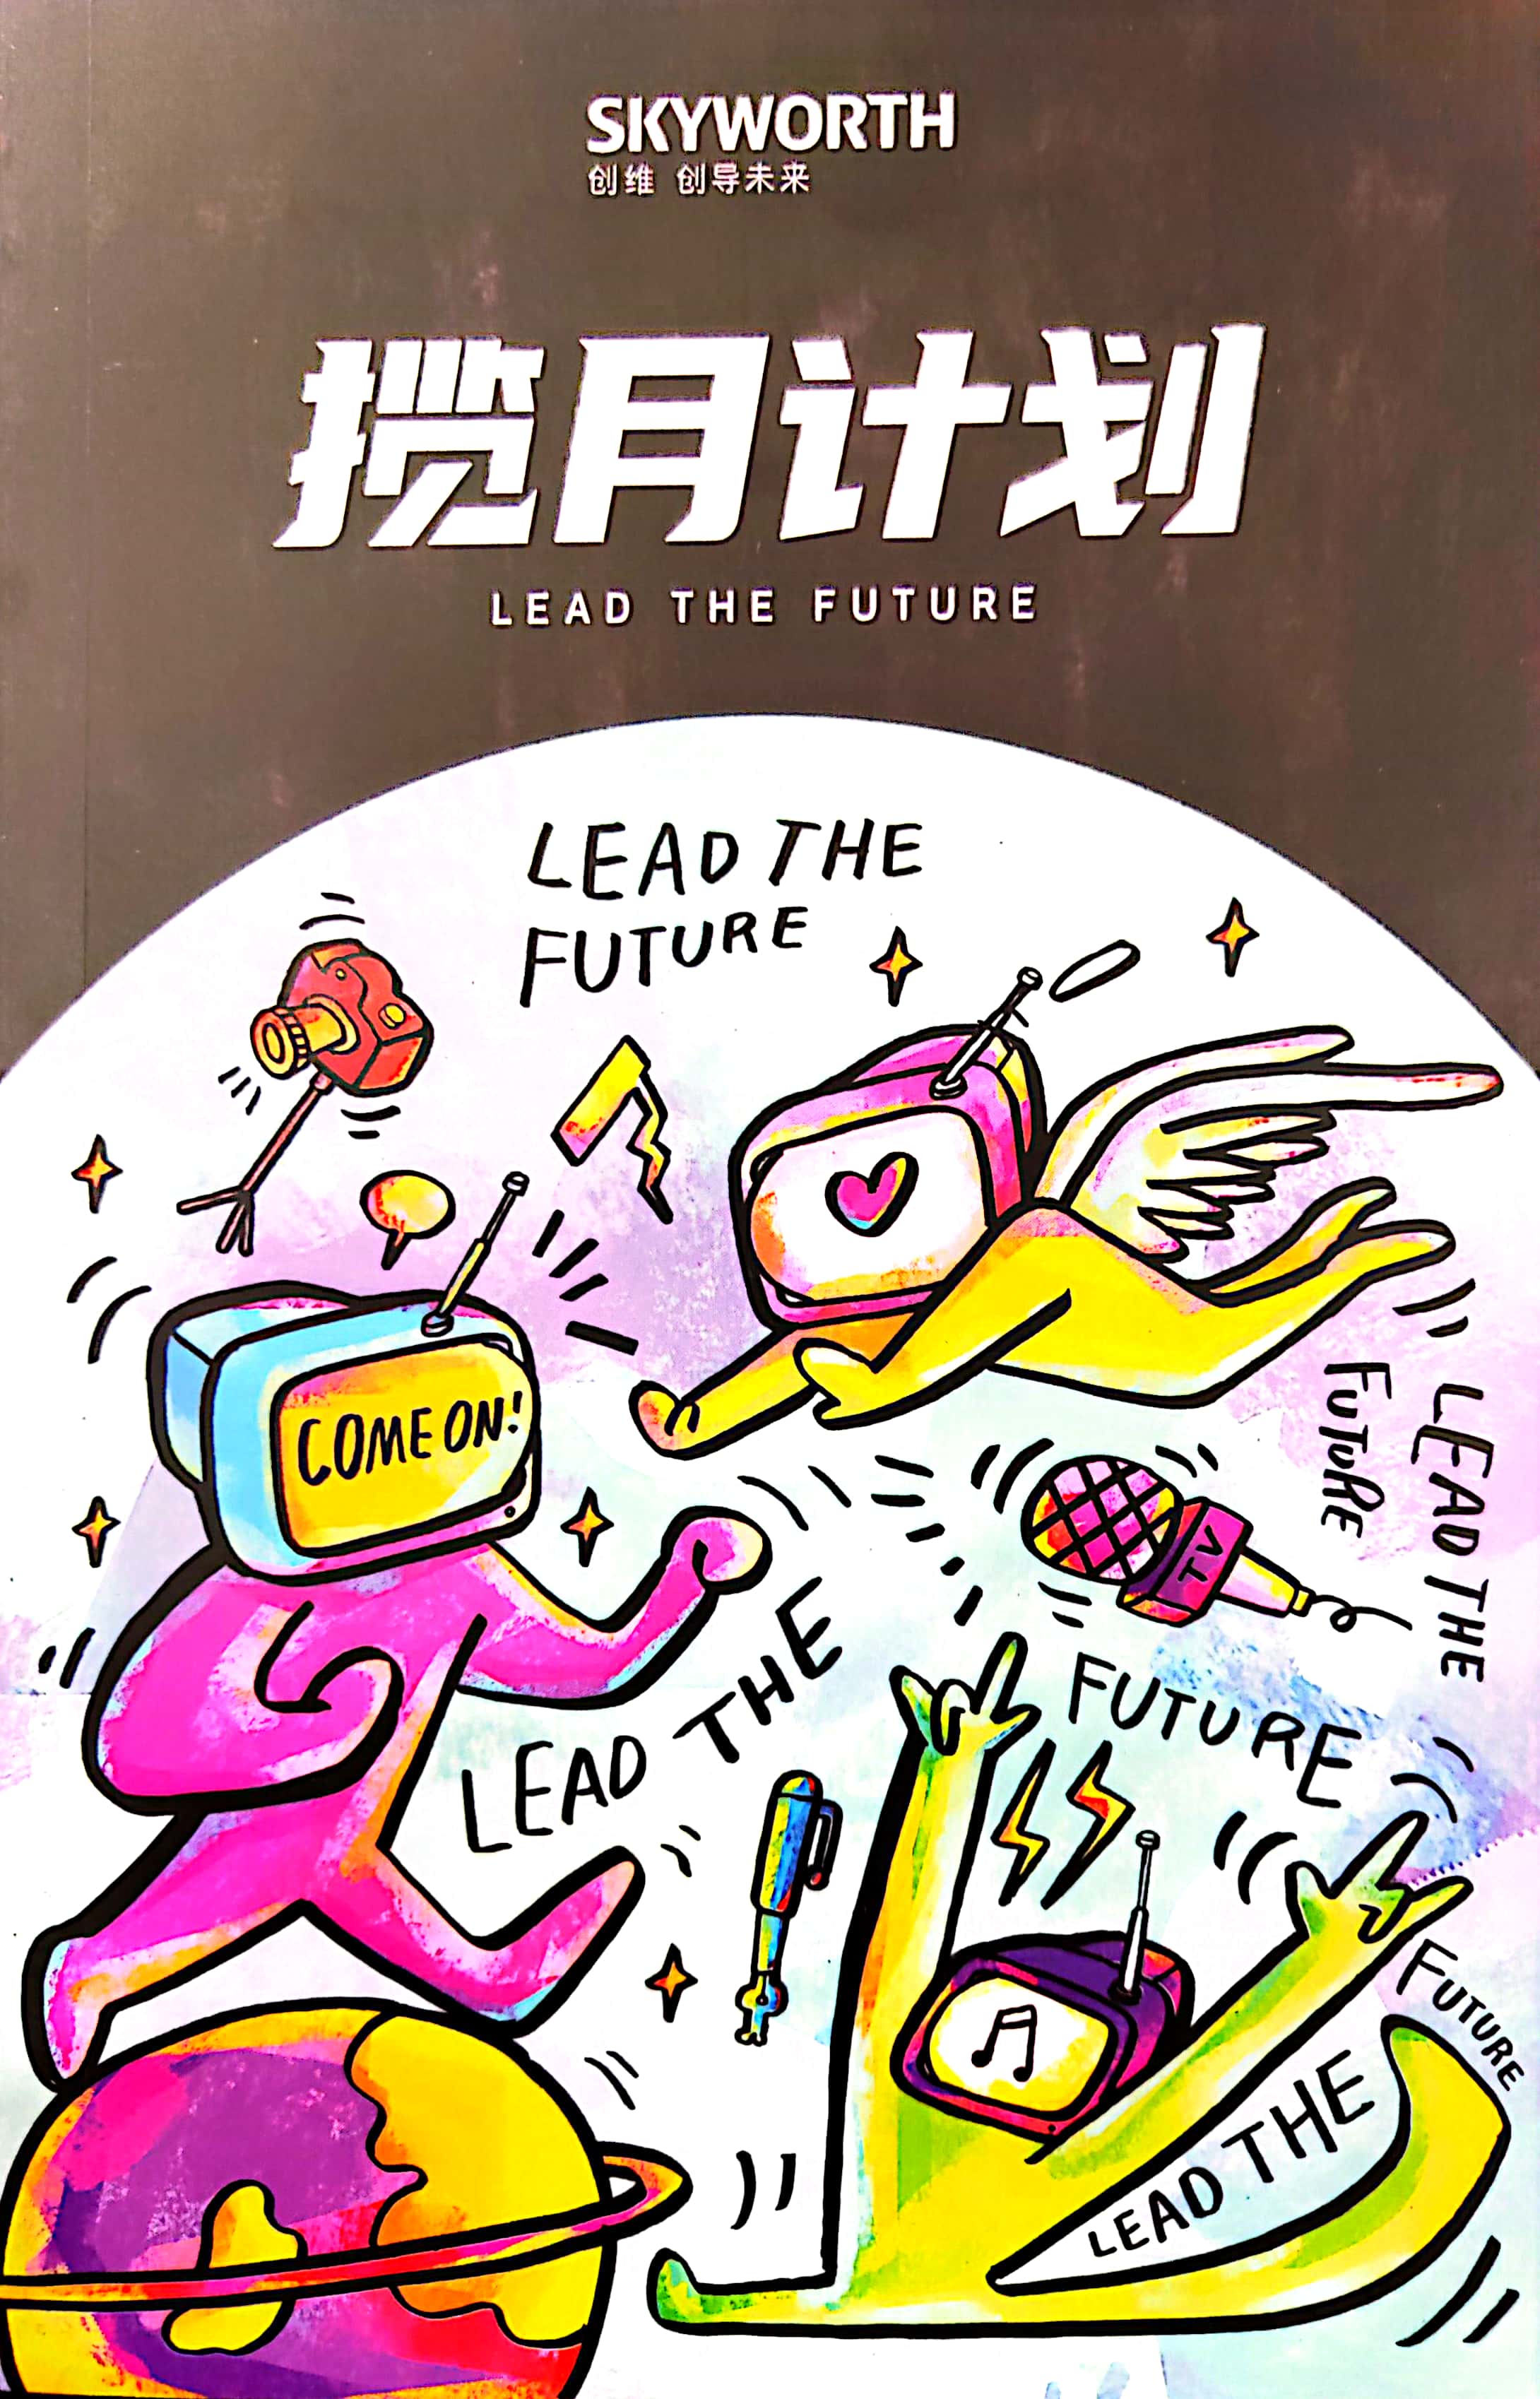 SKYWORTH
创维 创导未来
揽月计划
LEAD THE FUTURE
LEAD THE
FUTURE
COME ON!
LEAD THE
FUTURE
TV
LEAD THE
FUTURE
LEAD THE
FUTURE